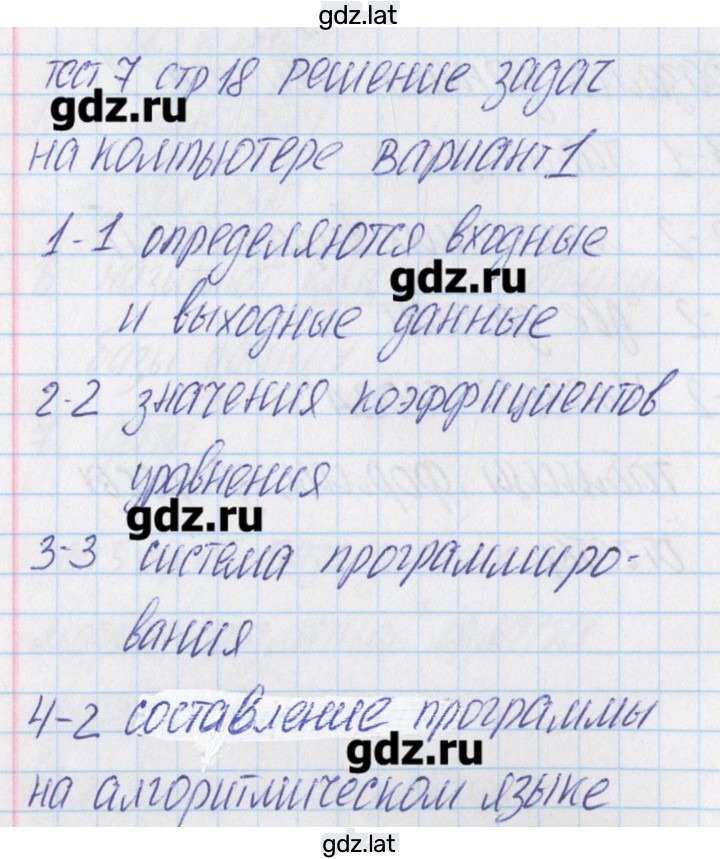 gdz.lat
тест 7 стр 18 решение задач
gdz.ru
на компьютере вариант 1
1-1 определяются входные
gdz.ru
и выходные данные
2-2 значения коэффициентов
уравнения
gdz.ru
3-3 система программиро-
вания
4-2 составление программы
gdz.ru
на алгоритмическом языке
gdz.lat